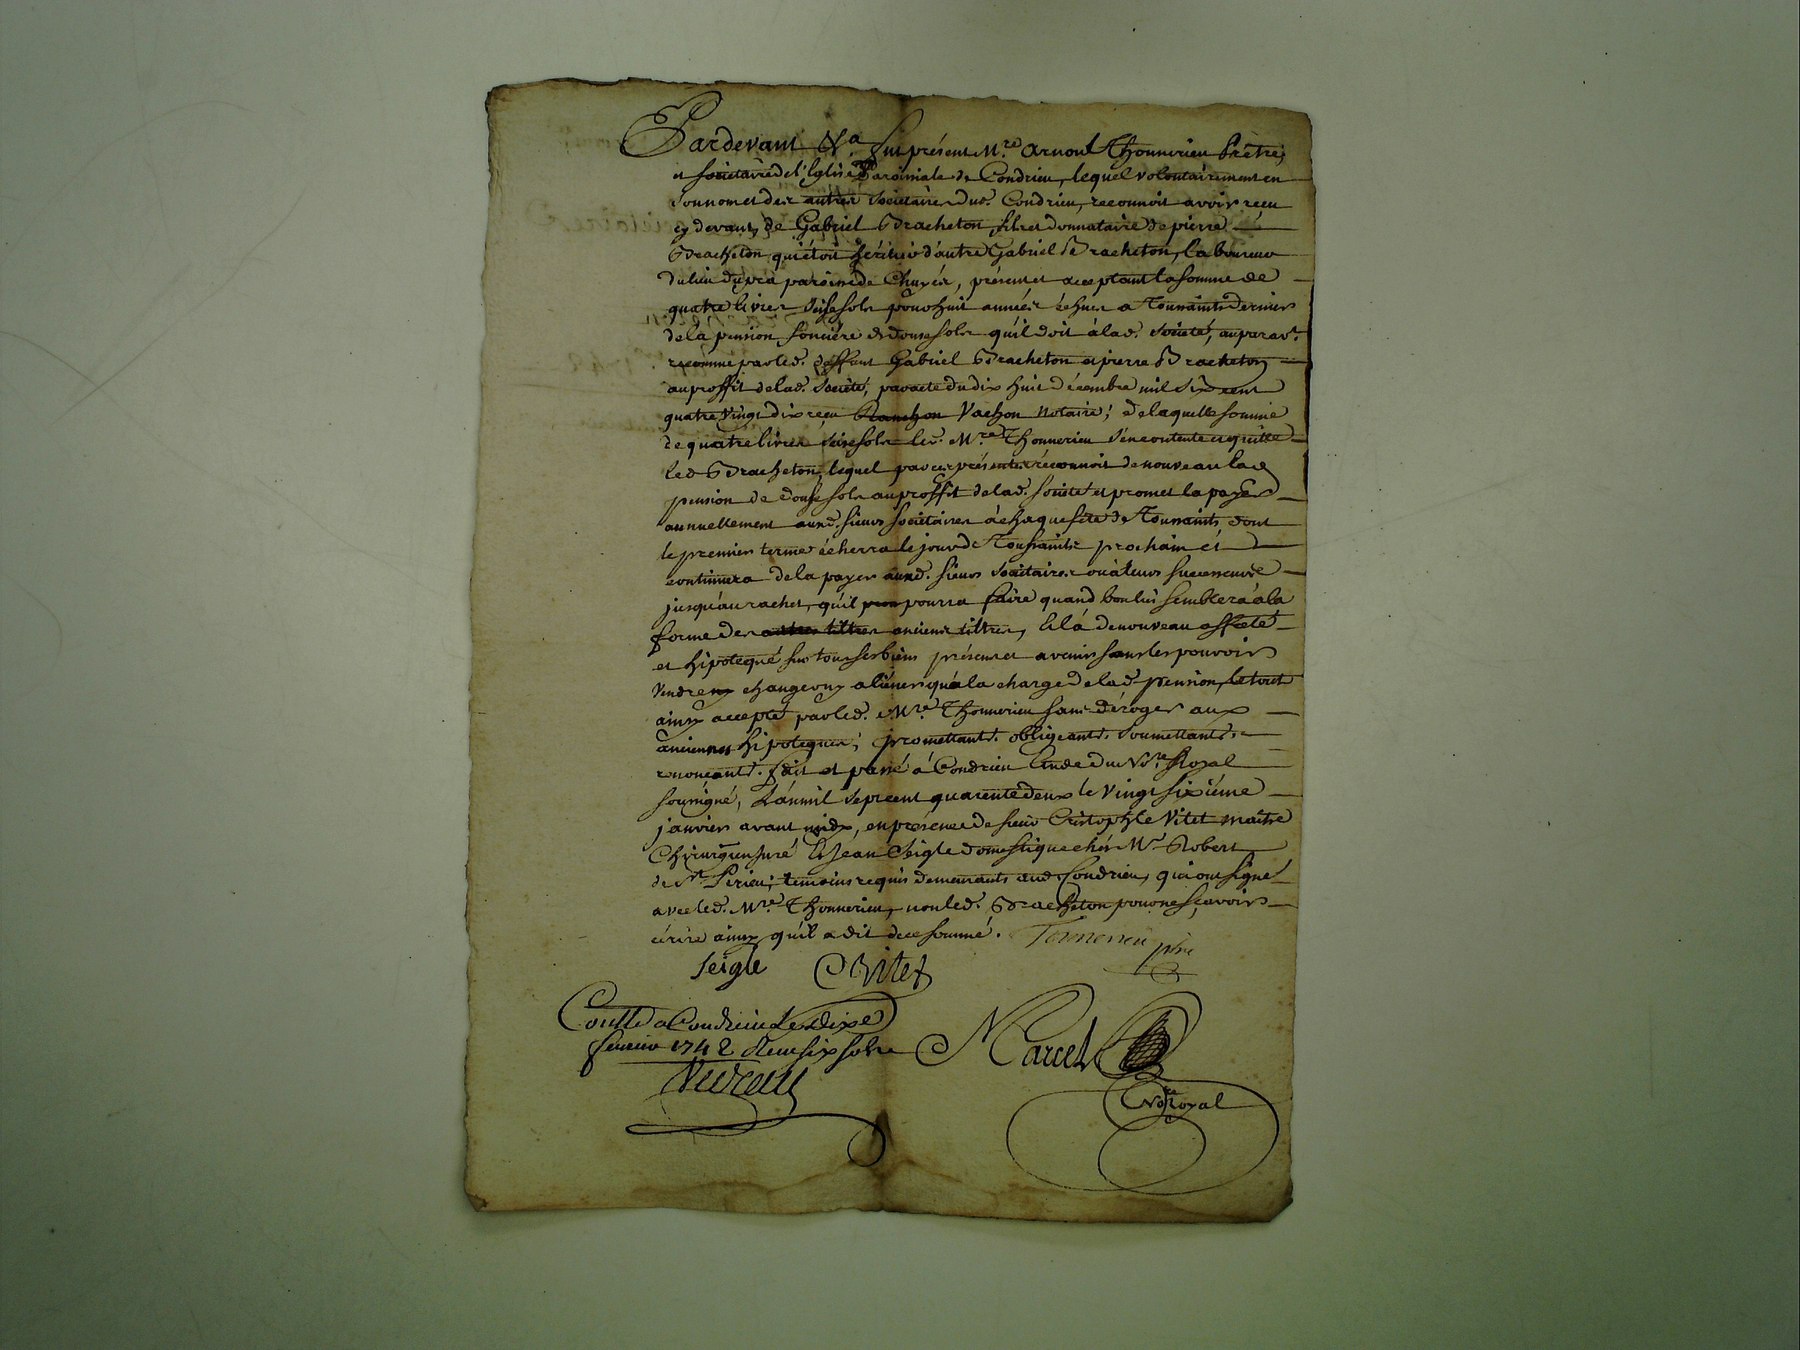 Pardevant N.re fut présent M.re Arnoul Thonnerieu Prêtre,
et sociétaire de l'Eglise Paroissiale de Condrieu, lequel volontairement en
son nom et des autres sociétaires dud. Condrieu, reconnoit avoir reçu
cy devant, de Gabriel Bracheton, fils et donnataire de pierre
Bracheton, qui étoit héritier d'autre Gabriel Bracheton, laboureur
du lieu du pra paroisse de Chuyer, présent et acceptant la somme de
quatre livres seise sols pour huit années échues a Toussaints dernier
de la pension foncière de douse sols qu'il doit à lad. société, auparav.t
reconnue par led. deffunt Gabriel Bracheton et pierre Bracheton
au proffit de lad. société, par acte du dix huit décembre mil six cent
quatre vingt dix reçu Vachon notaire; de laquelle somme
de quatre livres seise sols led. M.re Thonnerieu s'en contente et quitte
led. Bracheton, lequel par ces présentes reconnoit de nouveau lad.
pension de douse sols au proffit de lad. société et promet la payer
annuellement auxd. sieurs sociétaires à chaque fête de Toussaints, dont
le premier terme écherra le jour de Toussaints prochain et
continuera de la payer auxd. sieurs sociétaires ou à leurs successeurs
jusqu'au rachet, qu'il pourra faire quand bon lui semblera à la
forme des autres tiltres anciens tiltres, et l'a de nouveau affecté
et hipotequé sur tous ses biens présents et avenir sans les pouvoir
vendre ny changer ny aliéner qu'à la charge de lad. pension, le tout
ainsy accepté par led. M.re Thonnerieu sans déroger aux
anciennes hipoteques; promettants. obligeants. soumettants.
renonceants. fait et passé à Condrieu Etude du No.re Royal
soussigné, L'an mil sept cent quarente deux le vingt sixiéme
janvier avant midy, en présence de sieur Cristophle Vitet maitre
Chirurgien Juré et Jean Seigle domestique chés M.r Robert
de S.t Perieu; temoins requis demeurants aud. Condrieu, qui ont signé
avec led. M.re Thonnerieu, non led. Bracheton pour ne sçavoir
écrire ainsy qu'il a dit de ce sommé. Tonnerieu ptre
Seigle C Vitet
Conllé a Condrieu Le dixe
fevrier 1742 Reçu six sols Marcel
No.re Royal